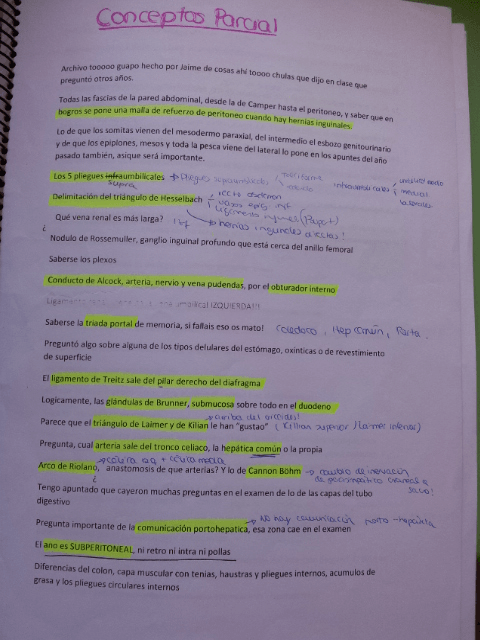 Conceptos Parcial
Archivo tooooo guapo hecho por Jaime de cosas ahí toooo chulas que dijo en clase que
preguntó otros años.
Todas las fascias de la pared abdominal, desde la de Camper hasta el peritoneo, y saber que en
bogros se pone una malla de refuerzo de peritoneo cuando hay hernias inguinales.
Lo de que los somitas vienen del mesodermo paraxial, del intermedio el esbozo genitourinario
y de que los epiplones, mesos y toda la pesca viene del lateral lo pone en los apuntes del año
pasado también, asique será importante.
Los 5 pliegues infraumbilicales
supra
Delimitación del triángulo de Hesselbach
hernias inguinales directas!
Qué vena renal es más larga?
Nodulo de Rossemuller, ganglio inguinal profundo que está cerca del anillo femoral
Saberse los plexos
Conducto de Alcock, arteria, nervio y vena pudendas, por el obturador interno
Saberse la triada portal de memoria, si fallais eso os mato! Coledoco, Hep Común, Porta.
Preguntó algo sobre alguna de los tipos delulares del estómago, oxínticas o de revestimiento
de superficie
El ligamento de Treitz sale del pilar derecho del diafragma
Logicamente, las glándulas de Brunner, submucosa sobre todo en el duodeno
Parece que el triángulo de Laimer y de Kilian le han "gustao" (Killian superior / Laimer inferior)
Pregunta, cual arteria sale del tronco celíaco, la hepática común o la propia
Arco de Riolano, anastomosis de que arterias? Y lo de Cannon Böhm → cambio de inervación
Tengo apuntado que cayeron muchas preguntas en el examen de lo de las capas del tubo
digestivo
No hay comunicación porto-hepática
Pregunta importante de la comunicación portohepatica, esa zona cae en el examen
El ano es SUBPERITONEAL, ni retro ni intra ni pollas
Diferencias del colon, capa muscular con tenias, haustras y pliegues internos, acumulos de
grasa y los pliegues circulares internos